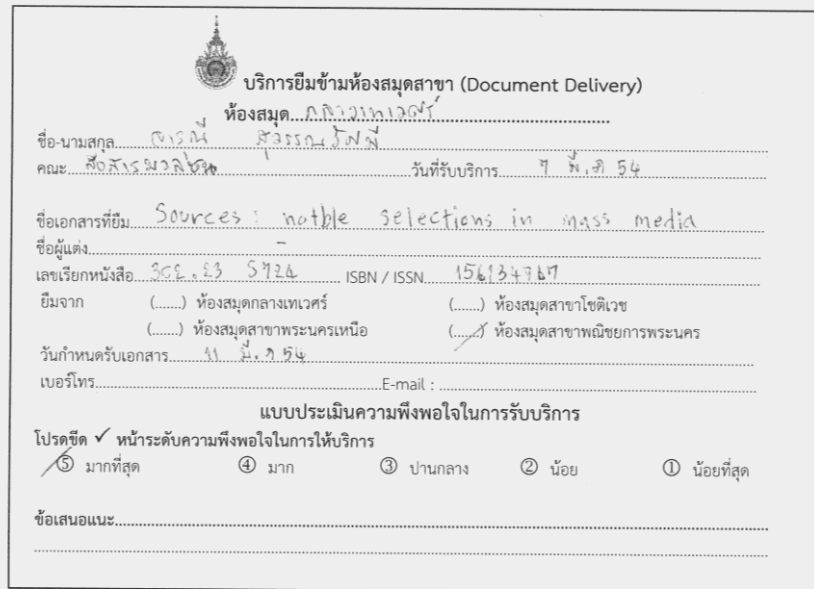 บริการยืมข้ามห้องสมุดสาขา (Document Delivery)
ห้องสมุด...กลางเทเวศร์
ชื่อ-นามสกุล... สุวรรณรัศมี
คณะ...สื่อสารมวลชน...วันที่รับบริการ... 7 มี.ค 54
ชื่อเอกสารที่ยืม...Sources : notble selections in mass media
ชื่อผู้แต่ง... -
เลขเรียกหนังสือ... ISBN / ISSN...
ยืมจาก (......) ห้องสมุดกลางเทเวศร์ (......) ห้องสมุดสาขาโชติเวช
(......) ห้องสมุดสาขาพระนครเหนือ (...✓...) ห้องสมุดสาขาพณิชยการพระนคร
วันกำหนดรับเอกสาร... 11 มี.ค 54
เบอร์โทร...E-mail : ...
แบบประเมินความพึงพอใจในการรับบริการ
โปรดขีด ✓ หน้าระดับความพึงพอใจในการให้บริการ
⑤ มากที่สุด ④ มาก ③ ปานกลาง ② น้อย ① น้อยที่สุด
ข้อเสนอแนะ...